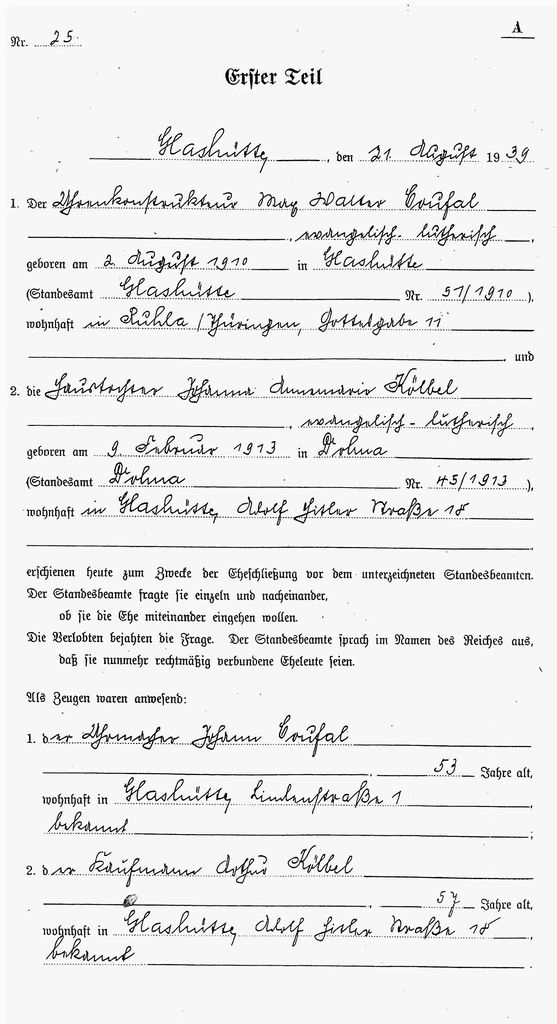 A
Nr. 25.
Erster Teil
Glashütte, den 21. August 1939
1. Der Uhrenkonstrukteur Max Walter Coufal
, evangelisch-lutherisch,
geboren am 2. August 1910 in Glashütte
(Standesamt Glashütte Nr. 51/1910),
wohnhaft in Ruhla/Thüringen, Gottesgabe 11
, und
2. die Haustochter Johanna Annemarie Kölbel
, evangelisch-lutherisch,
geboren am 9. Februar 1913 in Dohna
(Standesamt Dohna Nr. 45/1913),
wohnhaft in Glashütte, Adolf Hitler Straße 18
.
erschienen heute zum Zwecke der Eheschließung vor dem unterzeichneten Standesbeamten.
Der Standesbeamte fragte sie einzeln und nacheinander,
ob sie die Ehe miteinander eingehen wollen.
Die Verlobten bejahten die Frage. Der Standesbeamte sprach im Namen des Reiches aus,
daß sie nunmehr rechtmäßig verbundene Eheleute seien.
Als Zeugen waren anwesend:
1. der Uhrmacher Johann Coufal
, 53 Jahre alt,
wohnhaft in Glashütte, Lindenstraße 1
bekannt ;
2. der Kaufmann Arthur Kölbel
, 57 Jahre alt,
wohnhaft in Glashütte, Adolf Hitler Straße 18
bekannt .